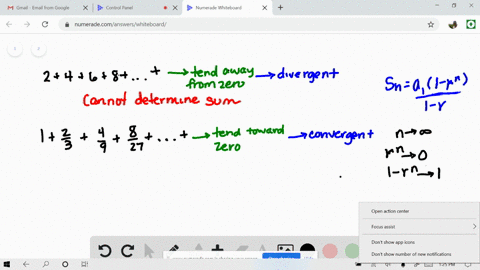 Gmail - Email from Google
Control Panel
Numerade Whiteboard
numerade.com/answers/whiteboard/
2+4+6+8+...+ → tend away from zero → divergent
Cannot determine sum
Sn = a1(1-r^n) / 1-r
1 + 2/3 + 4/9 + 8/27 + ... + → tend toward zero → convergent
n → ∞
r^n → 0
1-r^n → 1
Open action center
Focus assist
Don't show app icons
Don't show number of new notifications